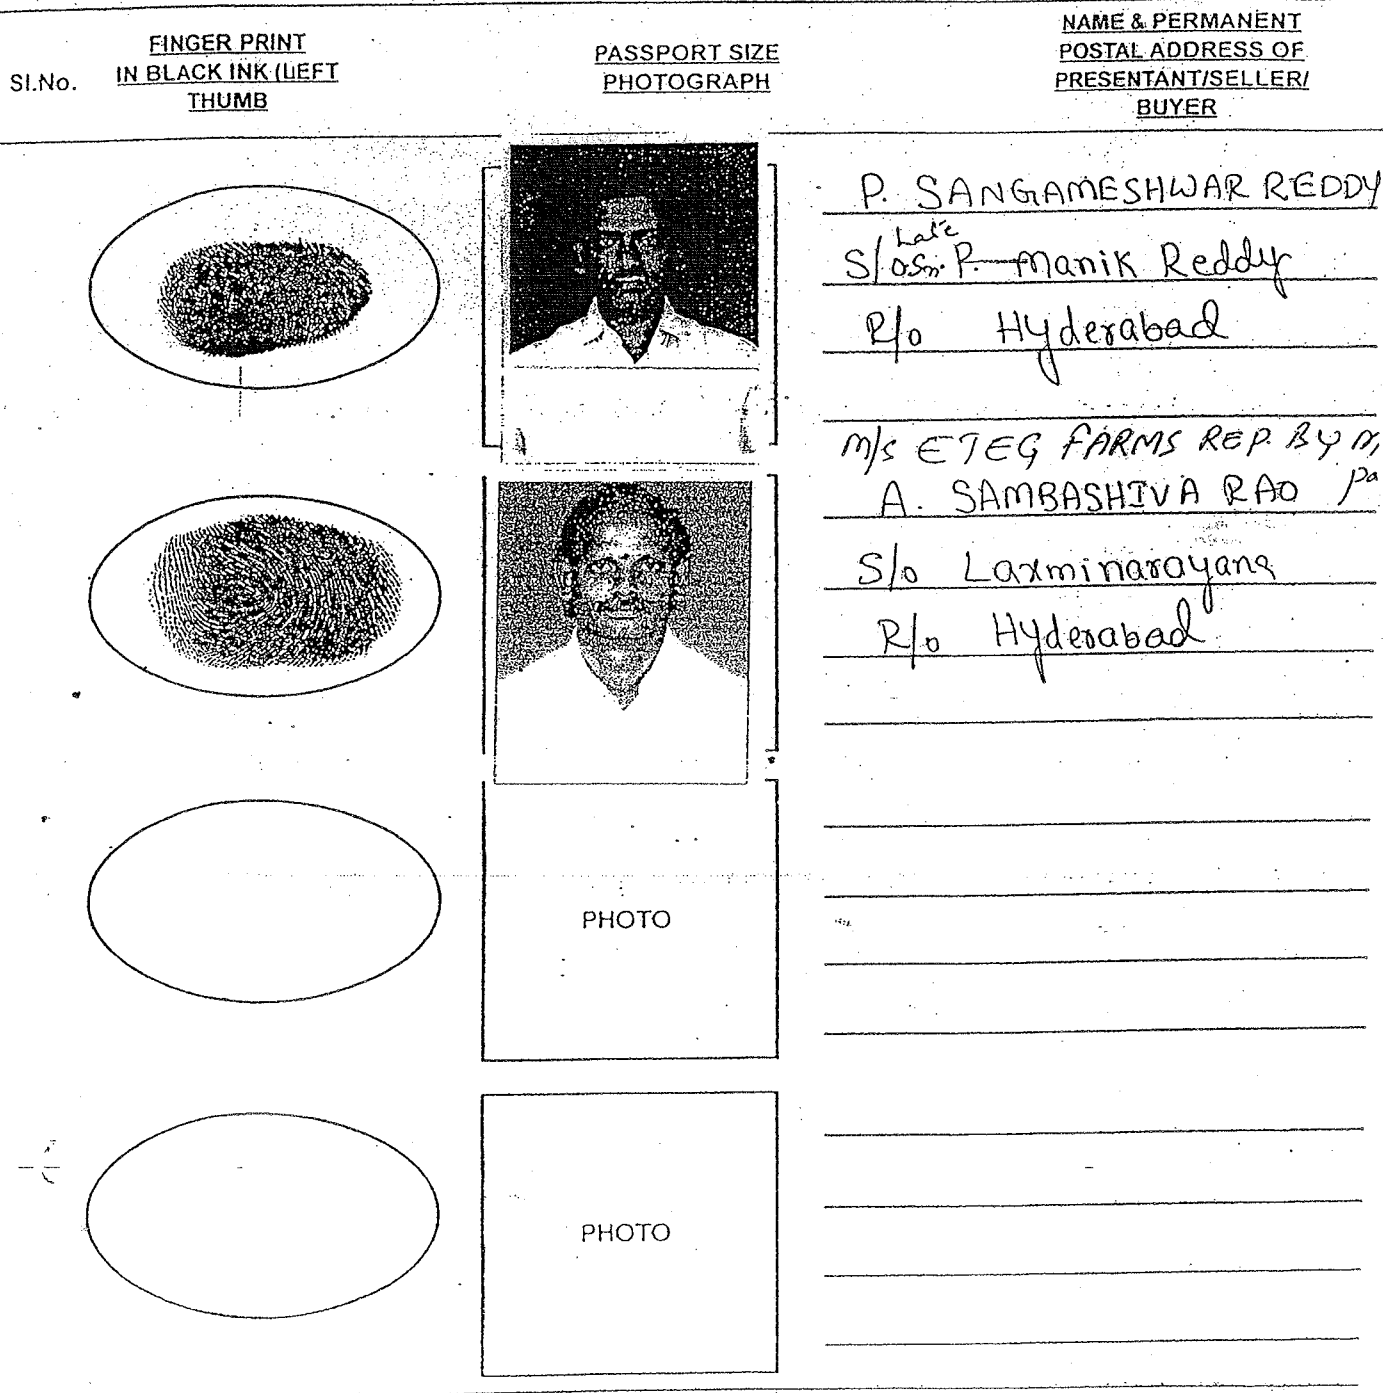 Sl.No.
FINGER PRINT
IN BLACK INK (LEFT
THUMB
PASSPORT SIZE
PHOTOGRAPH
NAME & PERMANENT
POSTAL ADDRESS OF
PRESENTANT/SELLER/
BUYER
P. SANGAMESHWAR REDDY
Late
S/o. Sri. P. Manik Reddy
R/o Hyderabad
M/s ETEG FARMS REP. BY
A. SAMBASHIVA RAO
S/o Laxminarayana
R/o Hyderabad
PHOTO
PHOTO